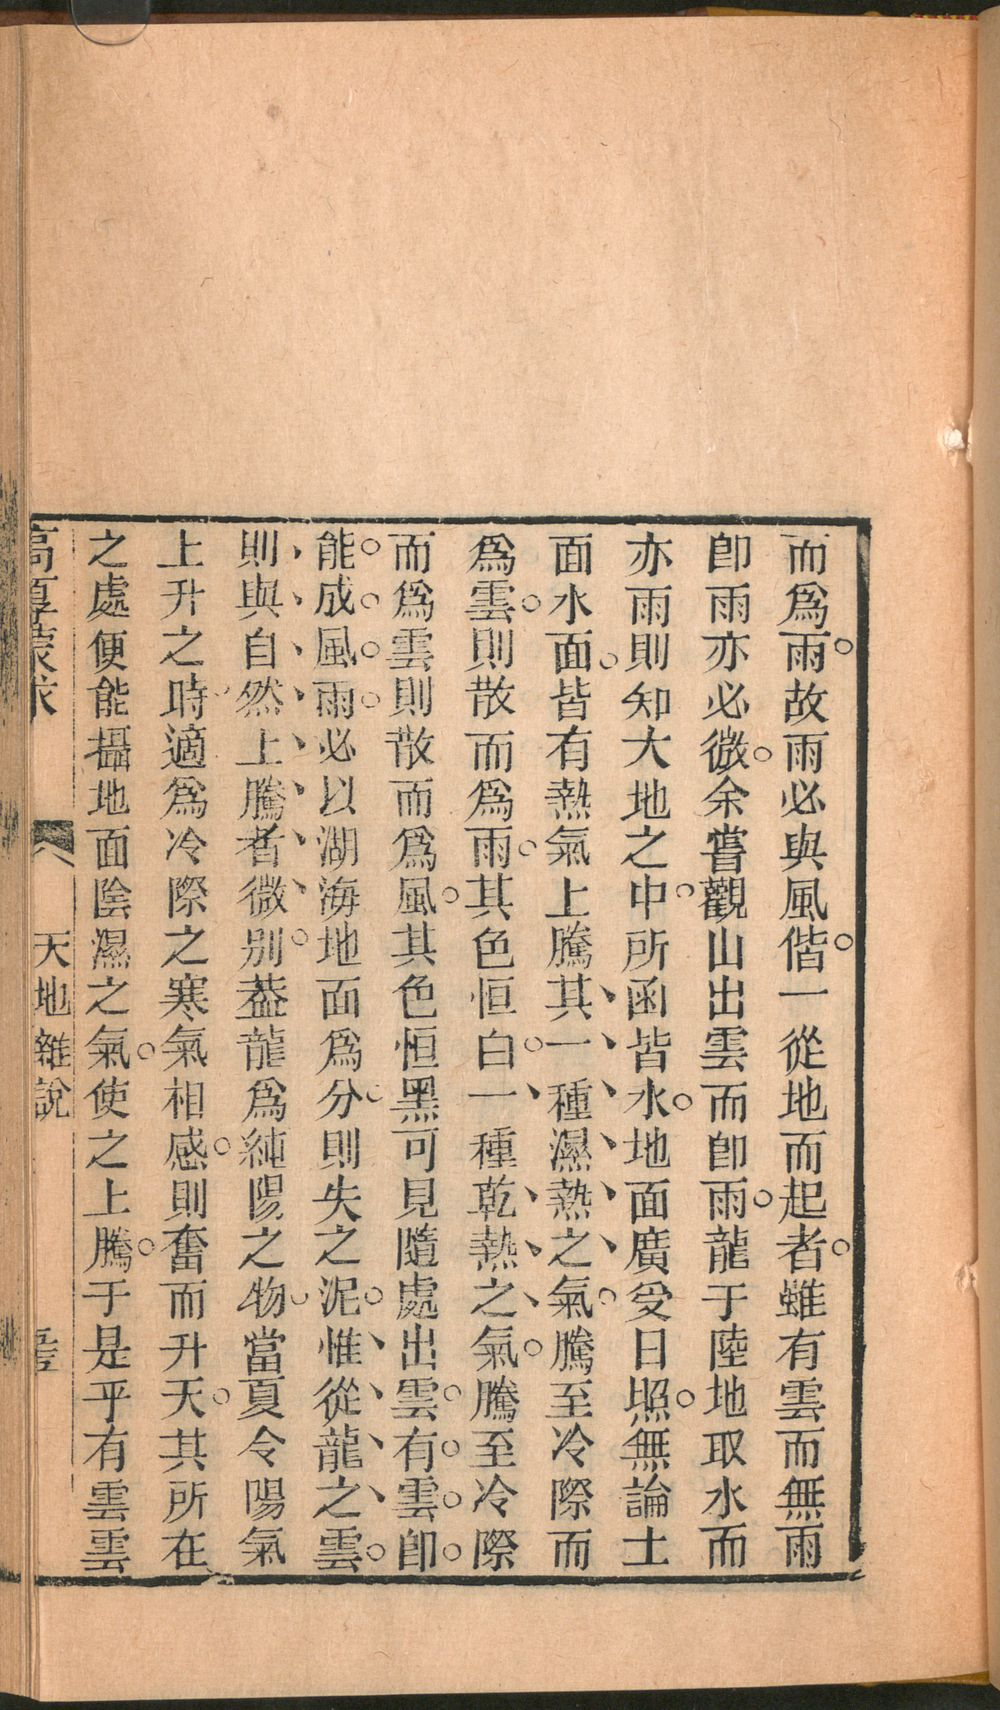 而爲雨。故雨必與風偕。一從地而起者。雖有雲而無雨
卽雨亦必微。余嘗觀山出雲而卽雨。龍于陸地取水而
亦雨則知大地之中。所函皆水。地面廣受日照。無論土
面水面。皆有熱氣上騰其一種濕熱之氣。騰至冷際而
爲雲。則散而爲雨。其色恒白。一種乾熱之氣。騰至冷際
而爲雲則散而爲風。其色恒黑可見隨處出雲。有雲卽
能成風雨。必以湖海地面爲分。則失之泥。惟從龍之雲。
則與自然上騰者微別。葢龍爲純陽之物。當夏令陽氣
上升之時。適爲冷際之寒氣相感。則奮而升天。其所在
之處便能攝地面陰濕之氣。使之上騰。于是乎有雲雲
高厚蒙求 天地雜說